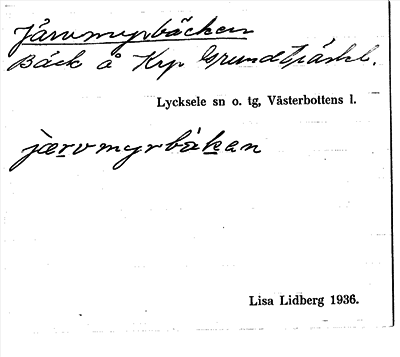 Järvmyrbäcken
Bäck å Krp Grundträsk.
Lycksele sn o. tg, Västerbottens l.
jærvmyrbäkan
Lisa Lidberg 1936.